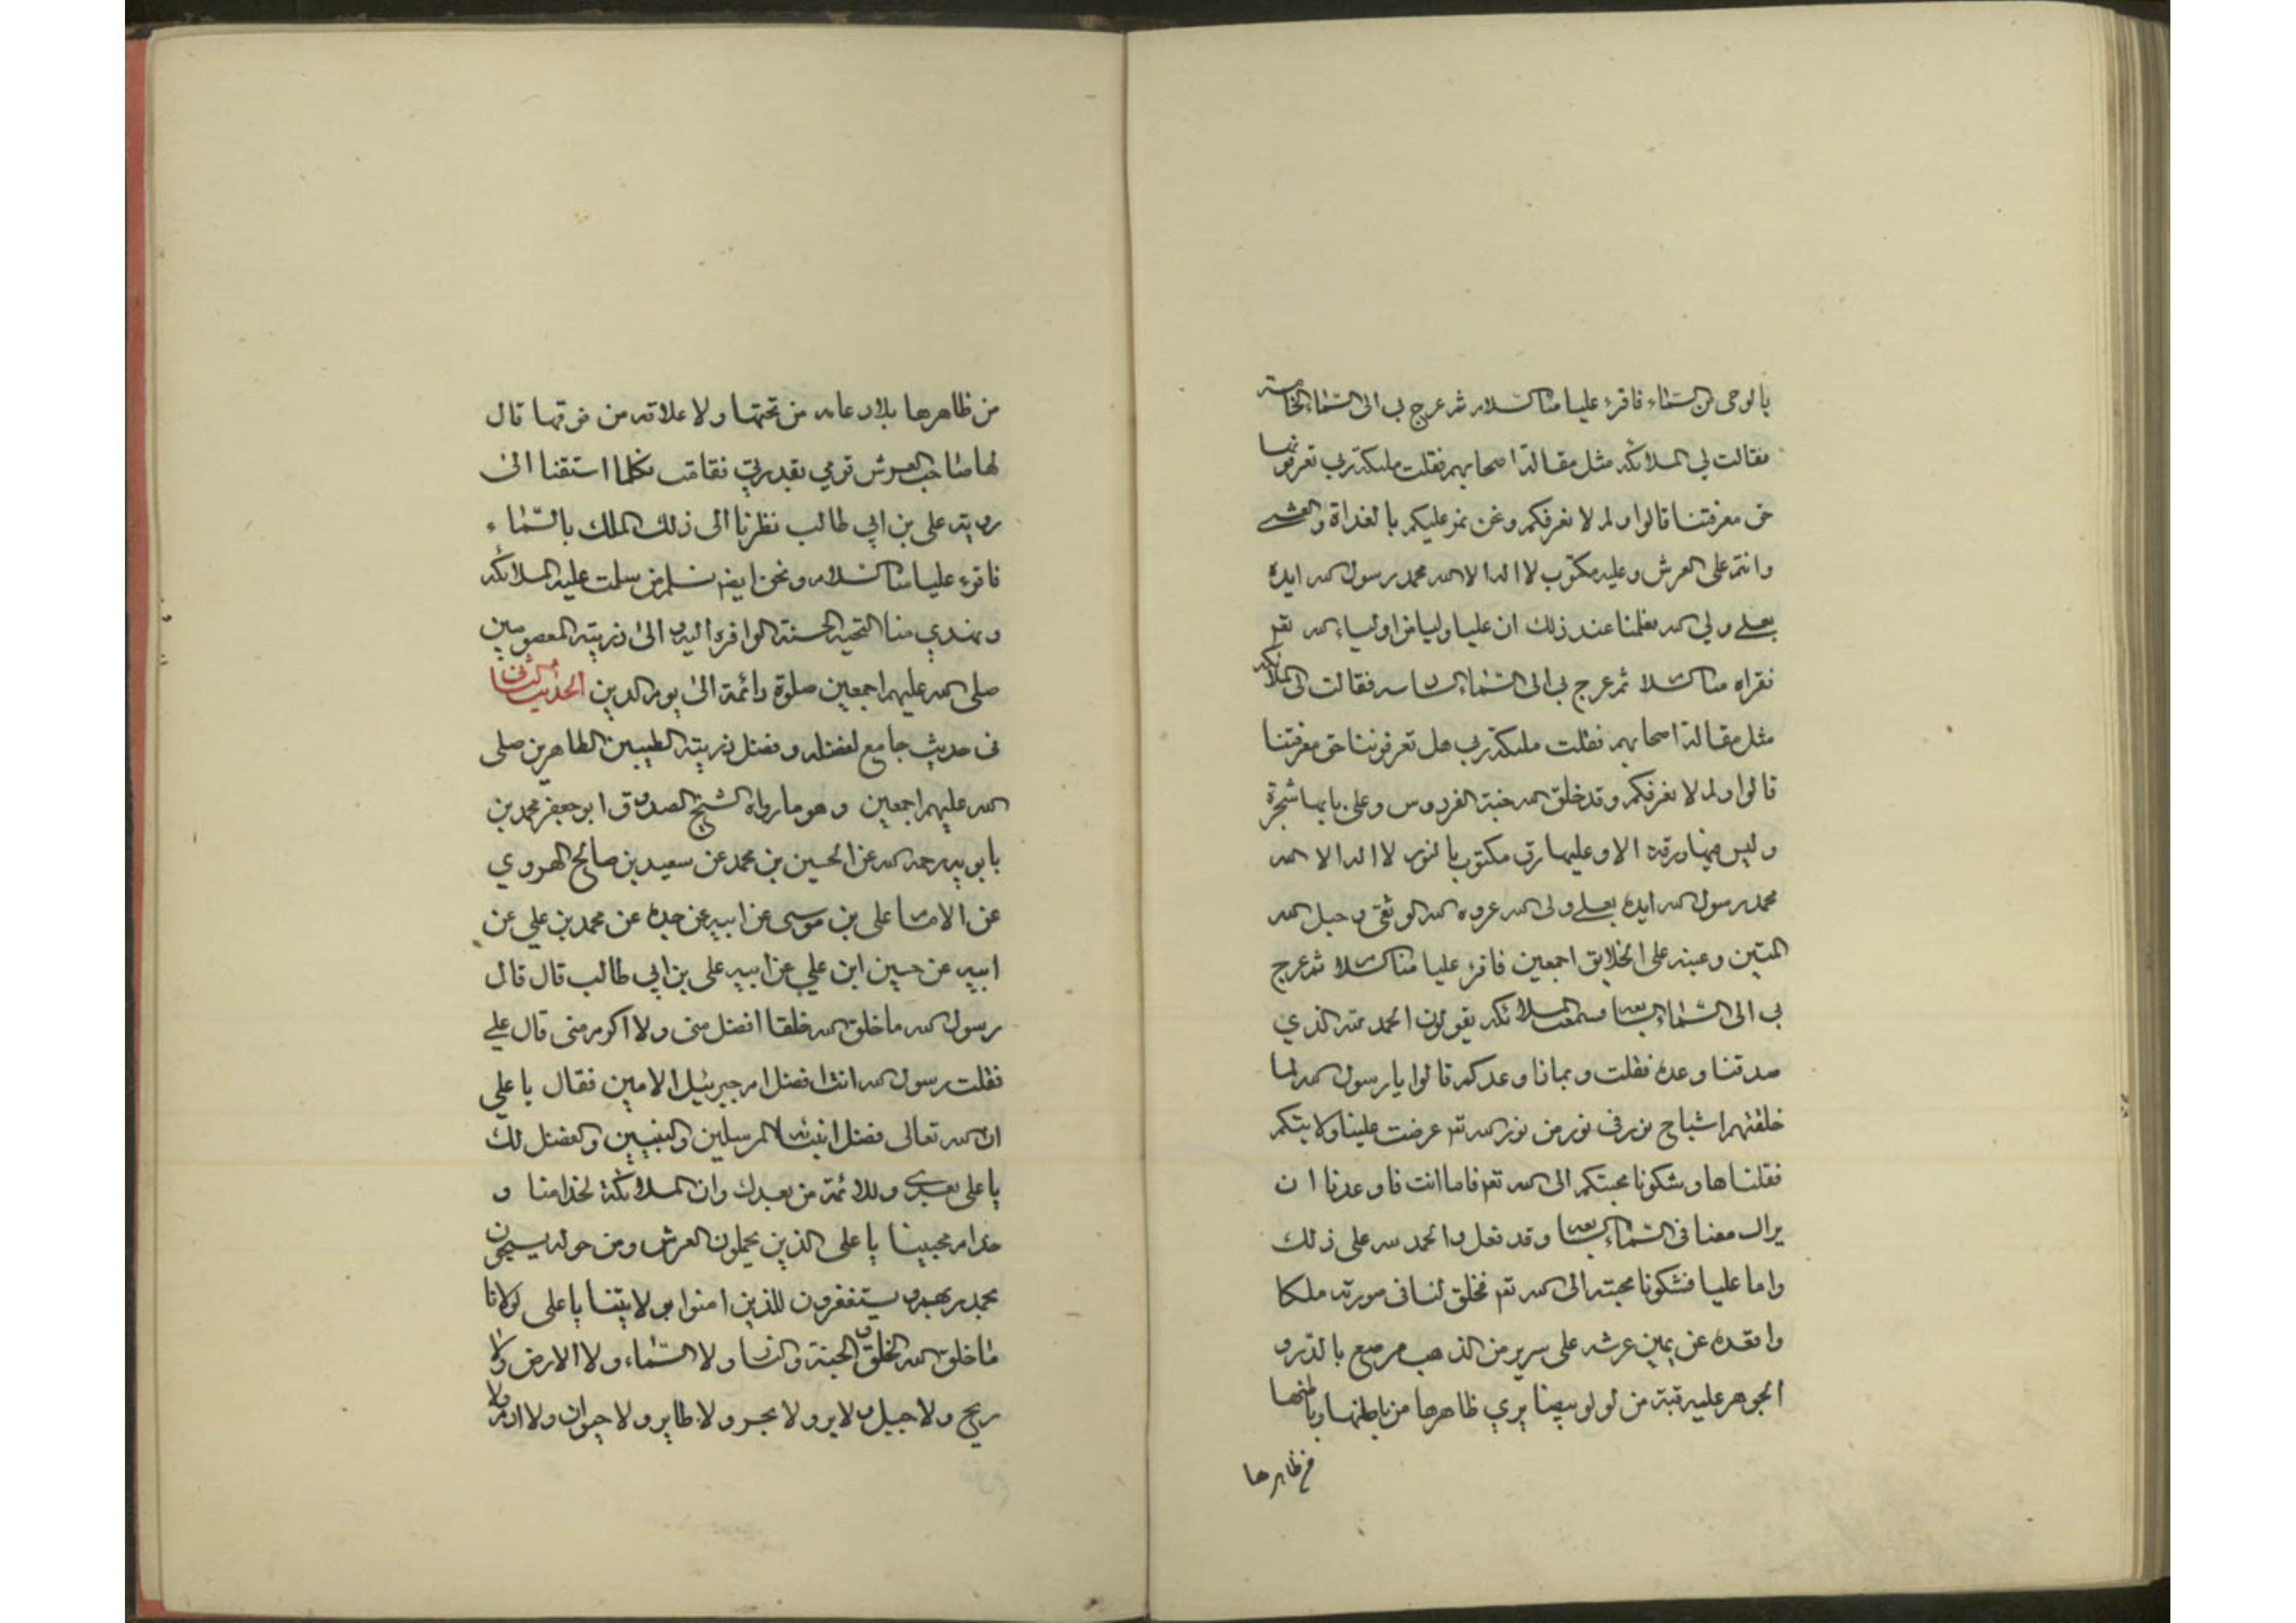 بالوحى من السماء فاقرء عليا منا السلام ثم عرج بى الى السماء الخامسة
فقالت لي الملائكه مثل مقالة اصحابهم فقلت ملئكة ربي تعرفوننا
حق معرفتنا قالوا ولم لا نعرفكم ونحن نمر عليكم بالغداة والعشي
وانتم على العرش وعليه مكتوب لا اله الا الله محمد رسول الله ايده
بعلي ولي الله فعلمنا عند ذلك ان عليا وليا من اولياء الله تعم
فقراه منا السلام ثم عرج بى الى السماء السادسه فقالت لى الملائكه
مثل مقالة اصحابهم فقلت ملئكة ربى هل تعرفوننا حق معرفتنا
قالوا ولم لا نعرفكم وقد خلق الله جنة الفردوس وعلى بابها شجرة
وليس فيها ورقة الا وعليها رق مكتوب بالنور لا اله الا الله
محمد رسول الله ايده بعلي ولى الله عروه الله الوثقى وحبل الله
المتين وعينه على الخلايق اجمعين فاقرء عليا منا السلام ثم عرج
بى الى السماء السابعه فسمعت الملائكه يقولون الحمد لله الذي
صدقنا وعده فقلت وبماذا وعدكم قالوا يا رسول الله لما
خلقتهم اشباح نور في نور من نور الله تعم عرضت علينا ولايتكم
فقلناها وشكونا محبتكم الى الله تعم فاما انت فاوعدنا ان
يراك معنا فى السماء السابعه وقد فعل والحمد لله على ذلك
واما عليا فشكونا محبته الى الله تعم فخلق لنا فى صورته ملكا
واقعده عن يمين عرشه على سرير من الذهب مرصع بالدر و
الجوهر عليه قبة من لولو بيضا يري ظاهرها من باطنها وباطنها
من ظاهرها
من ظاهرها بلا دعامه من تحتها ولا علاقه من فوقها قال
لها صاحب العرش قومي بقدرتي فقامت فكلما اشتقنا الى
رويته على بن ابي طالب نظرنا الى ذلك الملك بالسماء
فاقرء عليا منا السلام ونحن ايضم نسلم من سلمت عليه الملائكه
ونهدي منا التحيه الحسنة الوافره اليه و الى ذريته المعصومين
صلى الله عليهم اجمعين صلوة دائمة الى يوم الدين الحديث الثامن
فى حديث جامع لفضله وفضل ذريته الطيبين الطاهرين صلى
الله عليهم اجمعين وهو ما رواه الشيخ الصدوق ابو جعفر محمد بن
بابويه رحمه الله عن الحسين بن محمد عن سعيد بن صالح الهروي
عن الامام على بن موسى عن ابيه عن جده عن محمد بن علي عن
ابيه عن حسين ابن علي عن ابيه على بن ابي طالب قال قال
رسول الله ما خلق الله خلقا افضل منى ولا اكرم منى قال علي
فقلت رسول الله انت افضل ام جبرئيل الامين فقال يا علي
ان الله تعالى فضل انبيائه المرسلين والنبيين والفضل لك
يا على بعدى وللائمة من بعدك وان الملائكة لخدامنا و
خدام محبينا يا على الذين يحملون العرش ومن حوله يسبحون
بحمد ربهم و يستغفرون للذين امنوا بولايتنا يا على لولانا
ما خلق الله الخلق و الجنة والنار ولا السماء ولا الارض ولا
ريح ولا جبل ولا بر ولا بحر ولا طاير ولا حيوان ولا ادم ولا